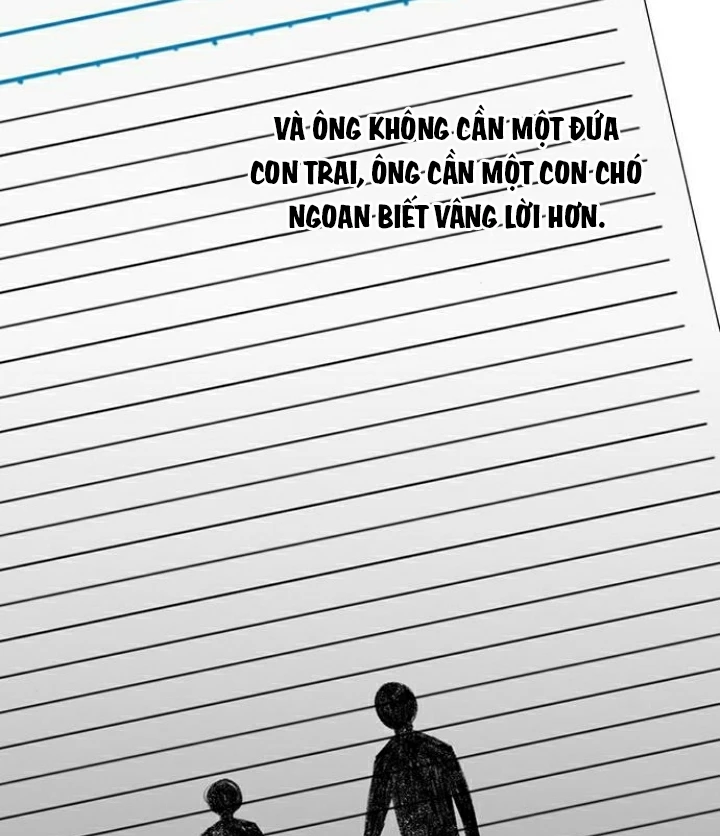 VÀ ÔNG KHÔNG CẦN MỘT ĐỨA
CON TRAI, ÔNG CẦN MỘT CON CHÓ
NGOAN BIẾT VÂNG LỜI HƠN.